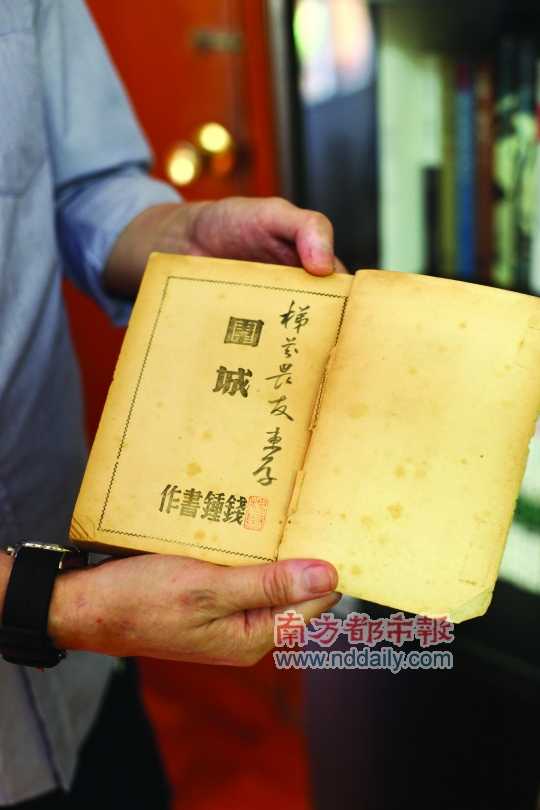 梯芬畏友惠存
圍城
錢鍾書作
南方都市報
www.nddaily.com